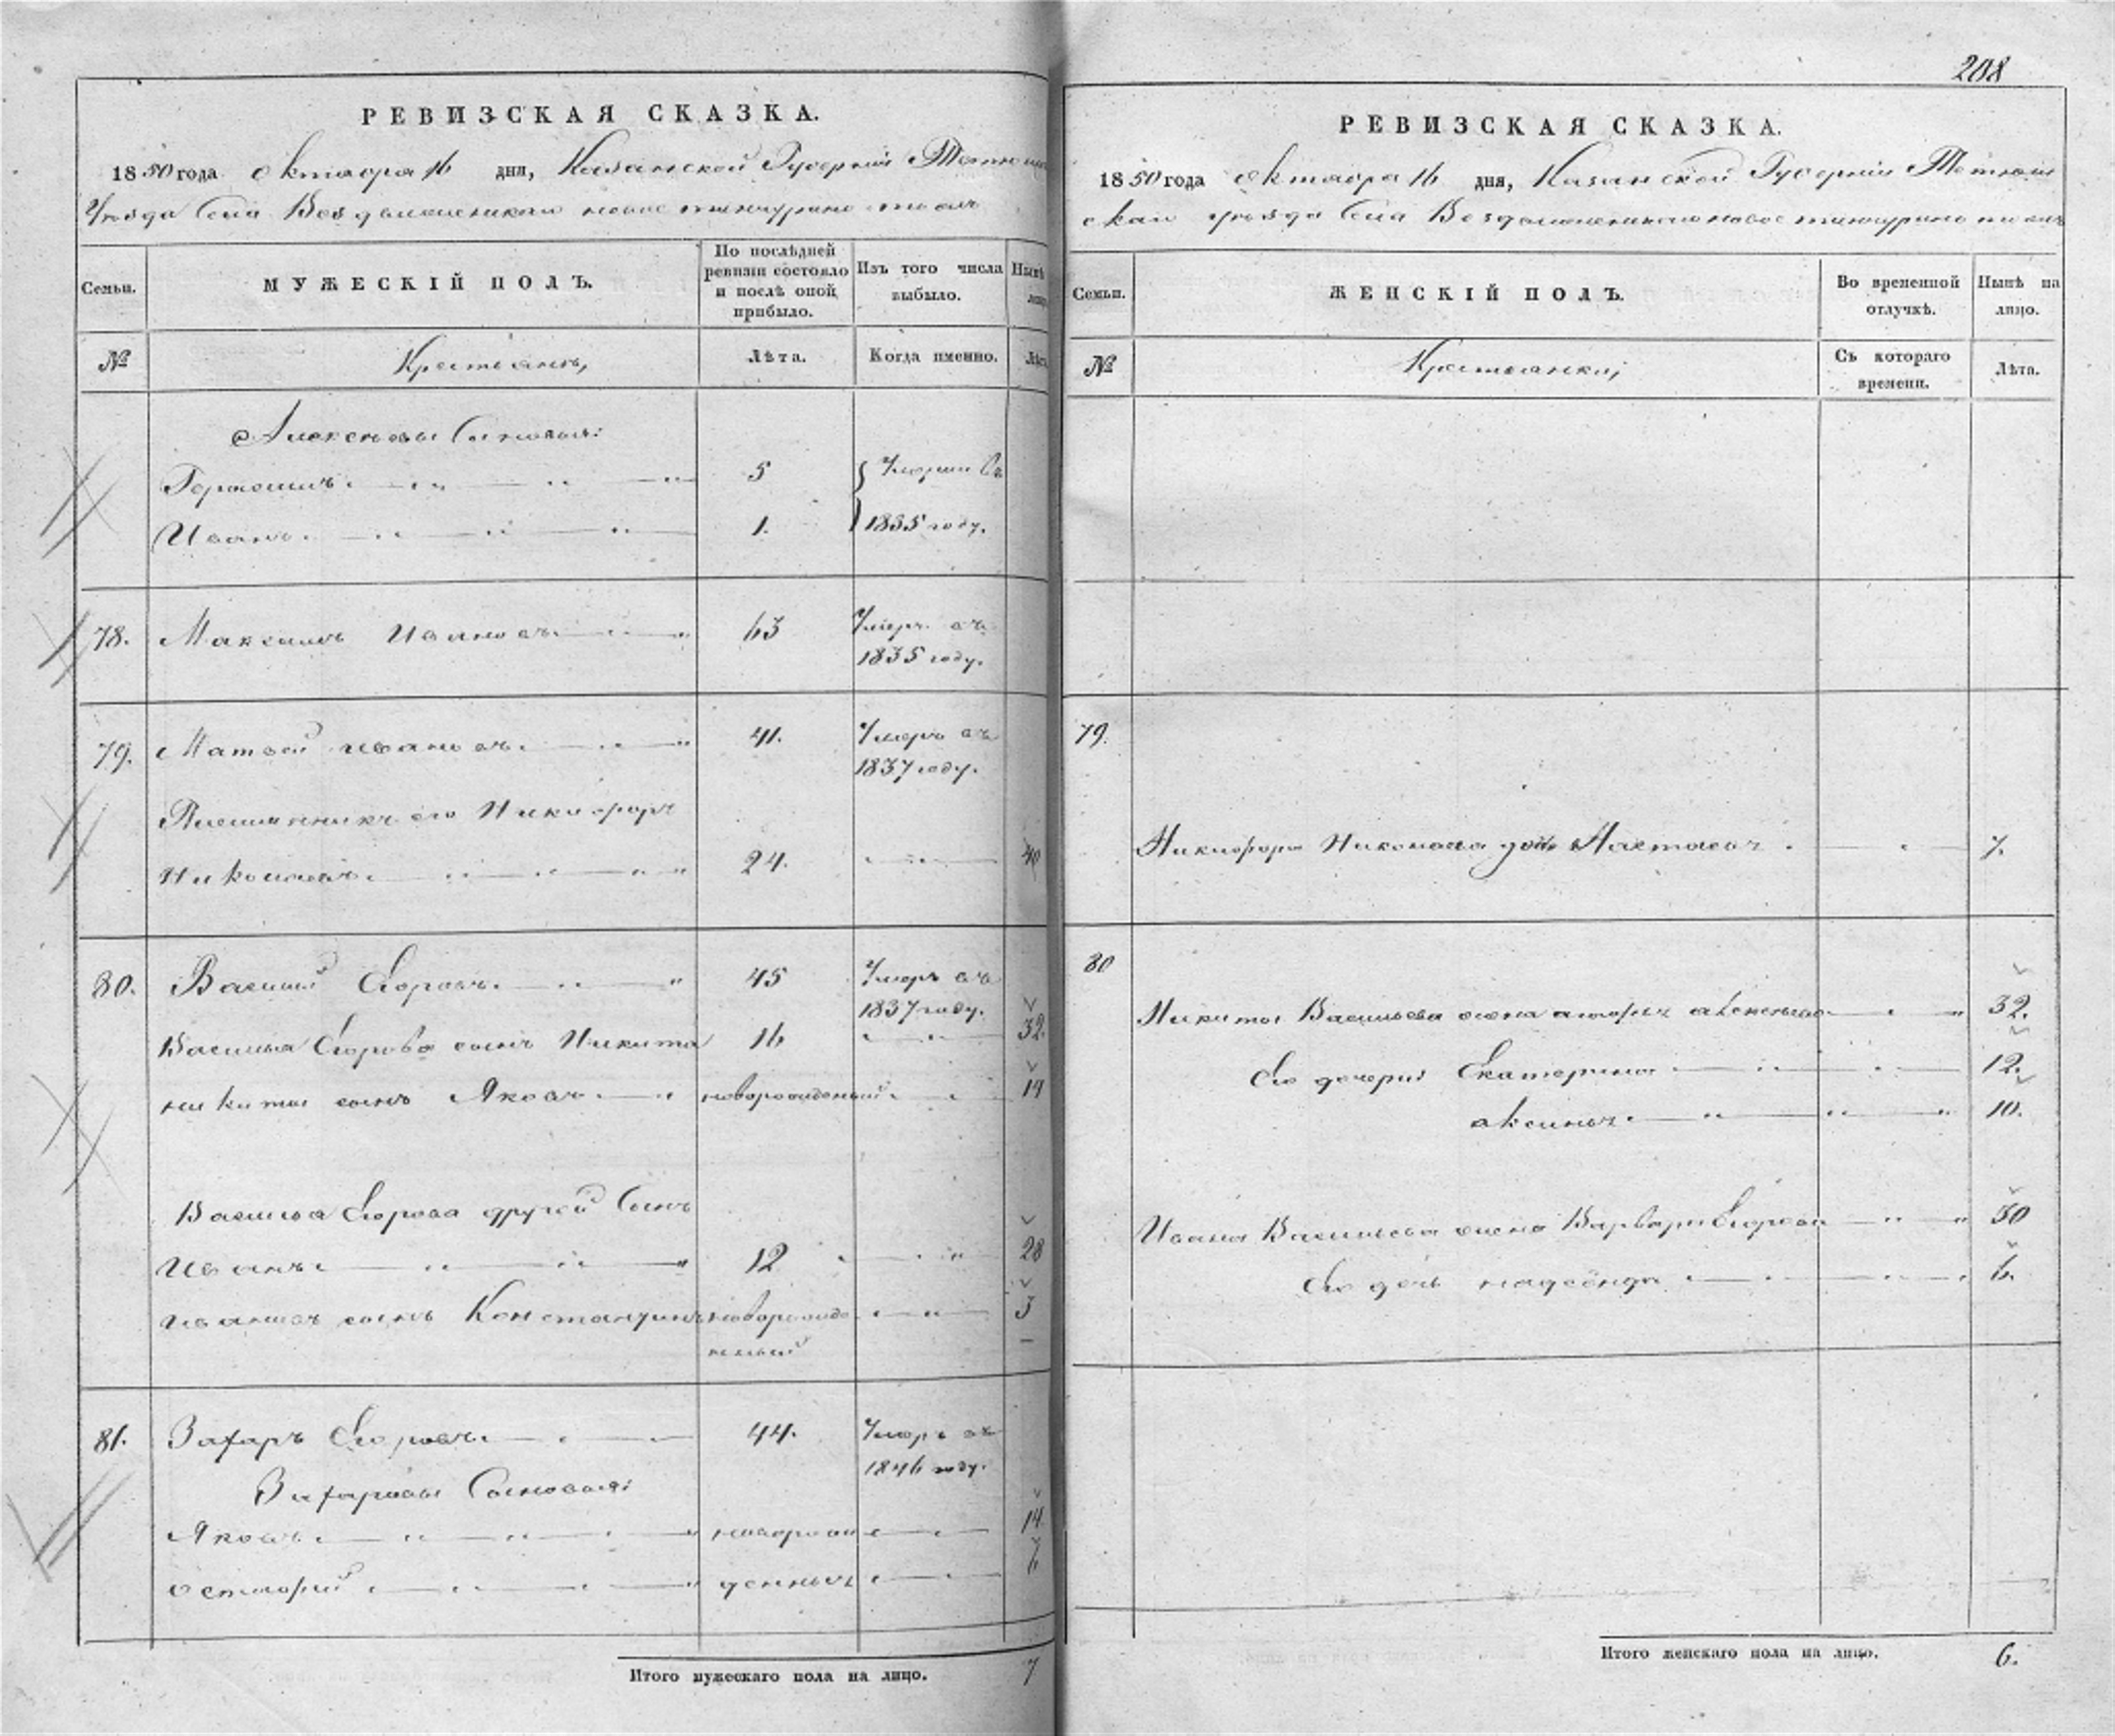 РЕВИЗСКАЯ СКАЗКА.
1850 года октября 16 дня, Казанской Губернии Тетюш
Уѣзда Села Воздвиженскаго новое тинчурино тожъ
Семьи.
МУЖЕСКІЙ ПОЛЪ.
По послѣдней ревизіи состояло и послѣ оной прибыло.
Изъ того числа выбыло.
Нынѣ
№
Крестьянъ,
Лѣта.
Когда именно.
Лѣта
Алексѣевы Сыновья:
5
Умерли въ
Иванъ.
1.
1835 году.
78.
Максимъ Ивановъ.
63
Умеръ въ
1835 году.
79.
Матвей ивановъ.
41.
Умеръ въ
1837 году.
Племянникъ его Никифоръ
Николаевъ.
24.
40
80.
Василий Егоровъ.
45
Умеръ въ
1837 году.
Василья Егорова сынъ Никита
16
32.
никиты сынъ Яковъ.
новорожденный
14
Василья Егорова другой Сынъ
Иванъ
12
28
ивановъ сынъ Константинъ
новорожде
нный
3
81.
Захаръ Егоровъ.
44.
Умеръ въ
1846 году.
Захаровы Сыновья:
Яковъ.
новорож
14
денные
7
Итого мужескаго пола на лицо.
7
208
РЕВИЗСКАЯ СКАЗКА.
1850 года октября 16 дня, Казанской Губерніи Тетюш
скаго уѣзда Села Воздвиженскаго новое тинчурино тожъ
Семьи.
ЖЕНСКІЙ ПОЛЪ.
Во временной отлучкѣ.
Нынѣ на лицо.
№
Крестьянки,
Съ котораго времени.
Лѣта.
79.
Никифора Николаева дочь Настасья
7.
80
Никиты Васильева жена
32.
Его дочери Екатерина
12.
аксинья
10.
Ивана Васильева жена Варвара Егорова
30
Его дочь надежда
6.
Итого женскаго пола на лицо.
6.